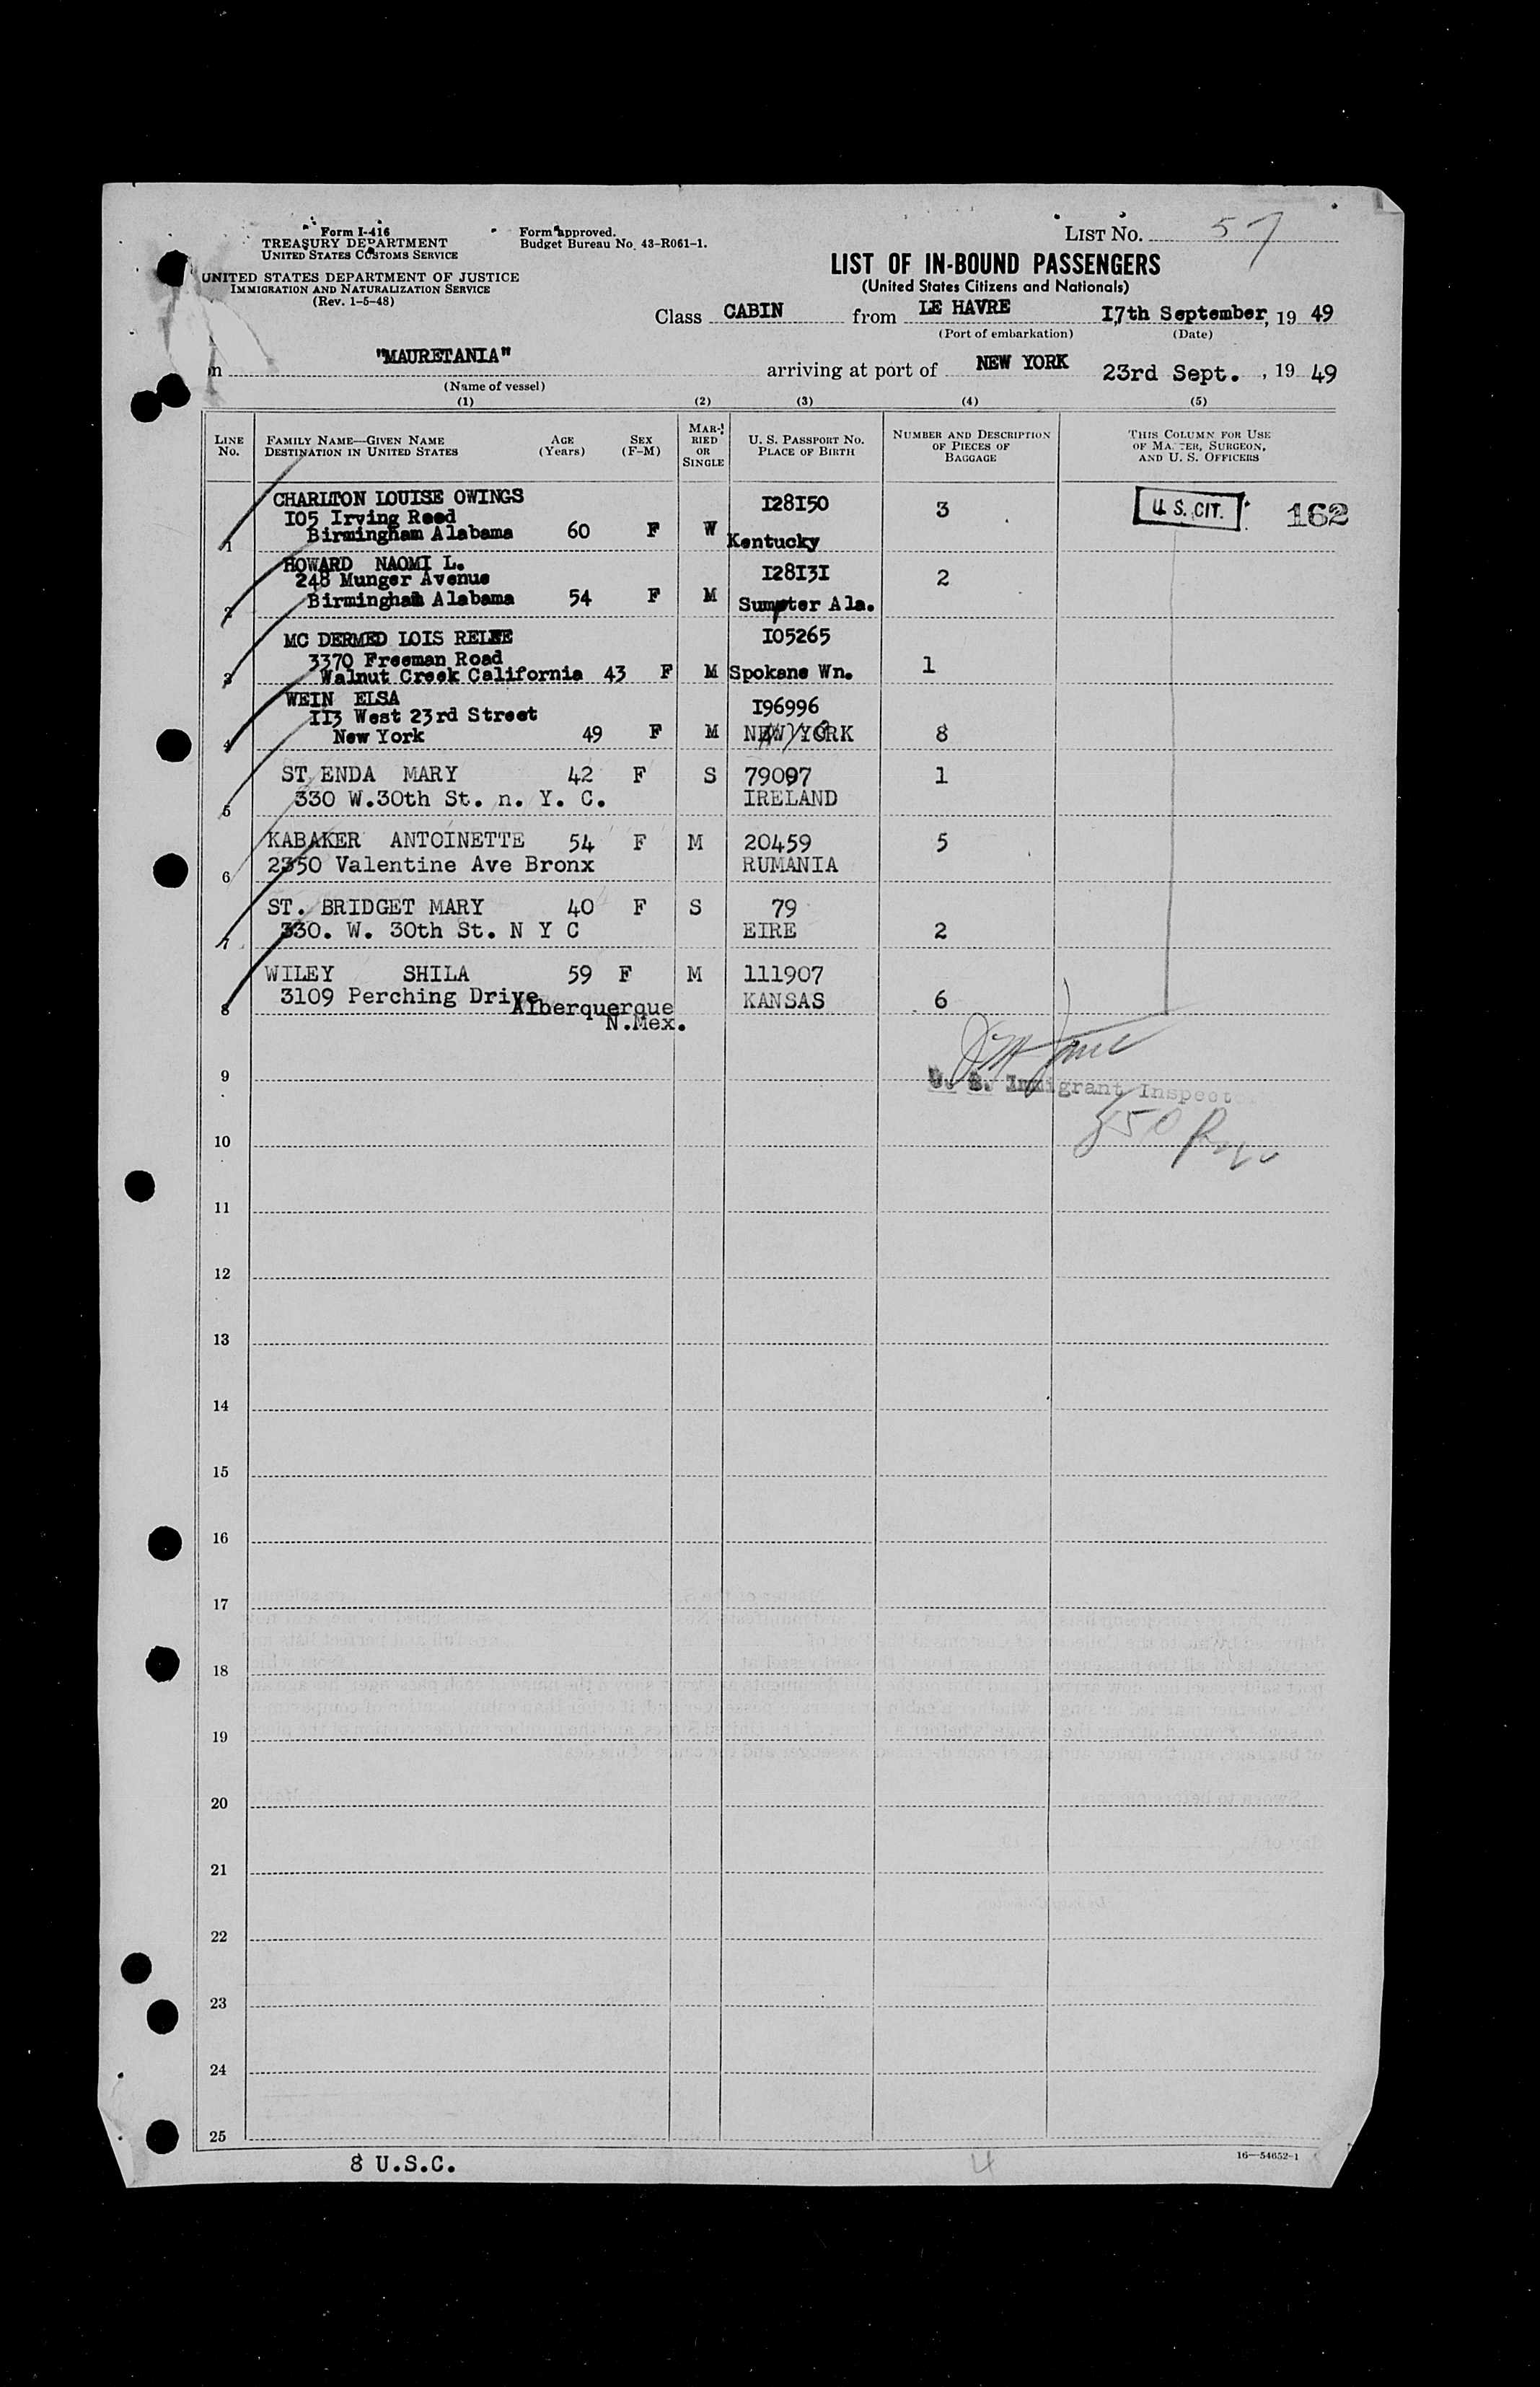 Form I-416
TREASURY DEPARTMENT
UNITED STATES CUSTOMS SERVICE
UNITED STATES DEPARTMENT OF JUSTICE
IMMIGRATION AND NATURALIZATION SERVICE
(Rev. 1-5-48)
Form approved.
Budget Bureau No. 43-R061-1.
LIST NO. 57
LIST OF IN-BOUND PASSENGERS
(United States Citizens and Nationals)
Class CABIN from LE HAVRE 17th September, 19 49
(Port of embarkation) (Date)
n "MAURETANIA" arriving at port of NEW YORK 23rd Sept. , 19 49
(Name of vessel)
(1) (2) (3) (4) (5)
LINE No. FAMILY NAME—GIVEN NAME DESTINATION IN UNITED STATES AGE (Years) SEX (F-M) MARRIED OR SINGLE U. S. PASSPORT NO. PLACE OF BIRTH NUMBER AND DESCRIPTION OF PIECES OF BAGGAGE THIS COLUMN FOR USE OF MASTER, SURGEON, AND U. S. OFFICERS
CHARLTON LOUISE OWINGS I28I50 3 U. S. CIT. 162
I05 Irving Road
1 Birmingham Alabama 60 F W Kentucky
HOWARD NAOMI L. I28I3I 2
248 Munger Avenue
2 Birmingham Alabama 54 F M Sumpter Ala.
MC DERMED LOIS RELEE I05265
3370 Freeman Road 1
3 Walnut Creek California 43 F M Spokane Wn.
WEIN ELSA I96996
II3 West 23rd Street
4 New York 49 F M NEW YORK 8
ST ENDA MARY 42 F S 79097 1
5 330 W.30th St. n. Y. C. IRELAND
KABAKER ANTOINETTE 54 F M 20459 5
6 2350 Valentine Ave Bronx RUMANIA
ST. BRIDGET MARY 40 F S 79
7 330. W. 30th St. N Y C EIRE 2
WILEY SHILA 59 F M 111907
8 3109 Perching Drive Alberquerque KANSAS 6
N.Mex.
9
U. S. Immigrant Inspector
10
11
12
13
14
15
16
17
18
19
20
21
22
23
24
25
8 U.S.C. 4 16—54652-1